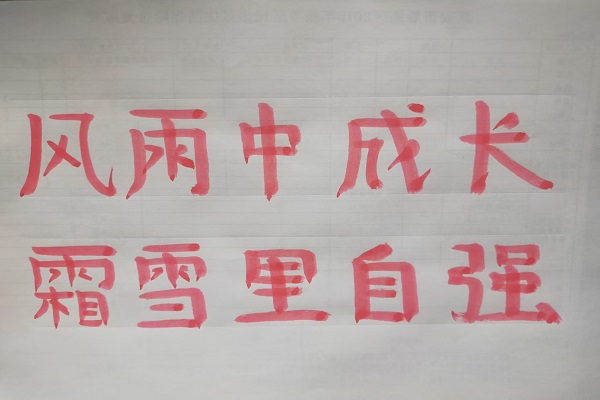 风雨中成长
霜雪里自强